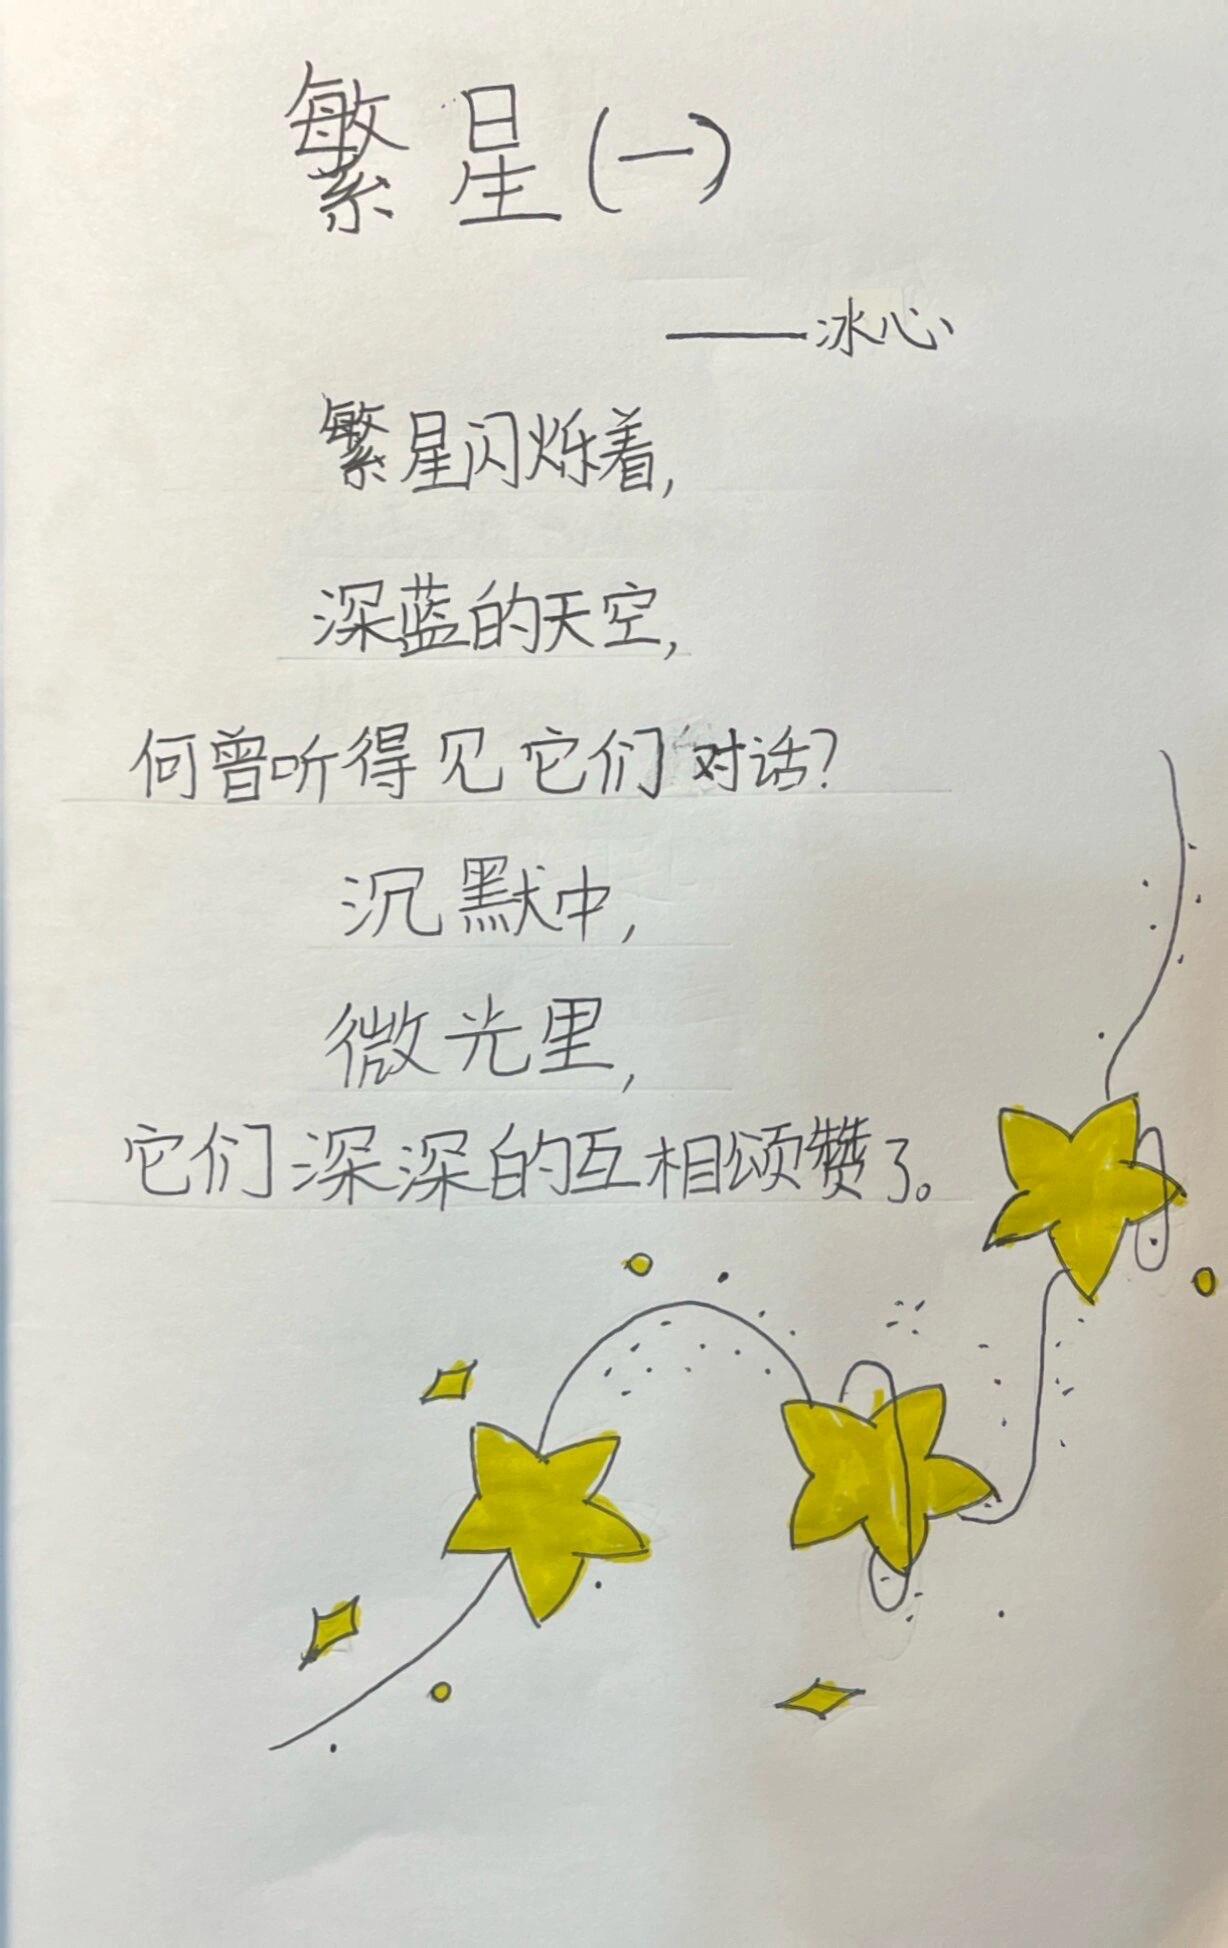 繁星(一)
——冰心
繁星闪烁着,
深蓝的天空,
何曾听得见它们对话?
沉默中,
微光里,
它们深深的互相颂赞了。